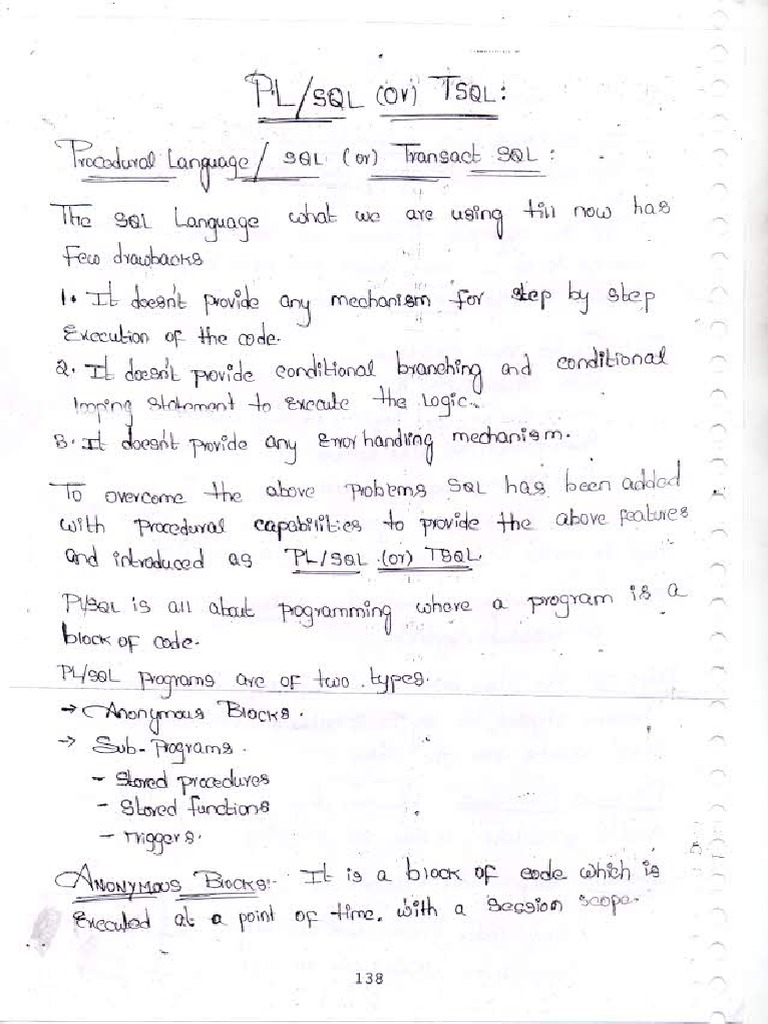 PL/SQL (or) TSQL:
Procedural Language/ SQL (or) Transact SQL :
The SQL Language what we are using till now has
few drawbacks
1. It doesn't provide any mechanism for step by step
Execution of the code.
2. It doesn't provide conditional branching and conditional
looping statement to execute the logic.
3. It doesn't provide any Error handling mechanism.
To overcome the above problems SQL has been added
with procedural capabilities to provide the above features
and introduced as PL/SQL (or) TSQL
Pl/SQL is all about programming where a program is a
block of code.
PL/SQL programs are of two types.
→ Anonymous Blocks.
→ Sub-Programs.
- Stored procedures
- Stored functions
- Triggers.
ANONYMOUS BLOCKS:- It is a block of code which is
Executed at a point of time, with a session scope.
138